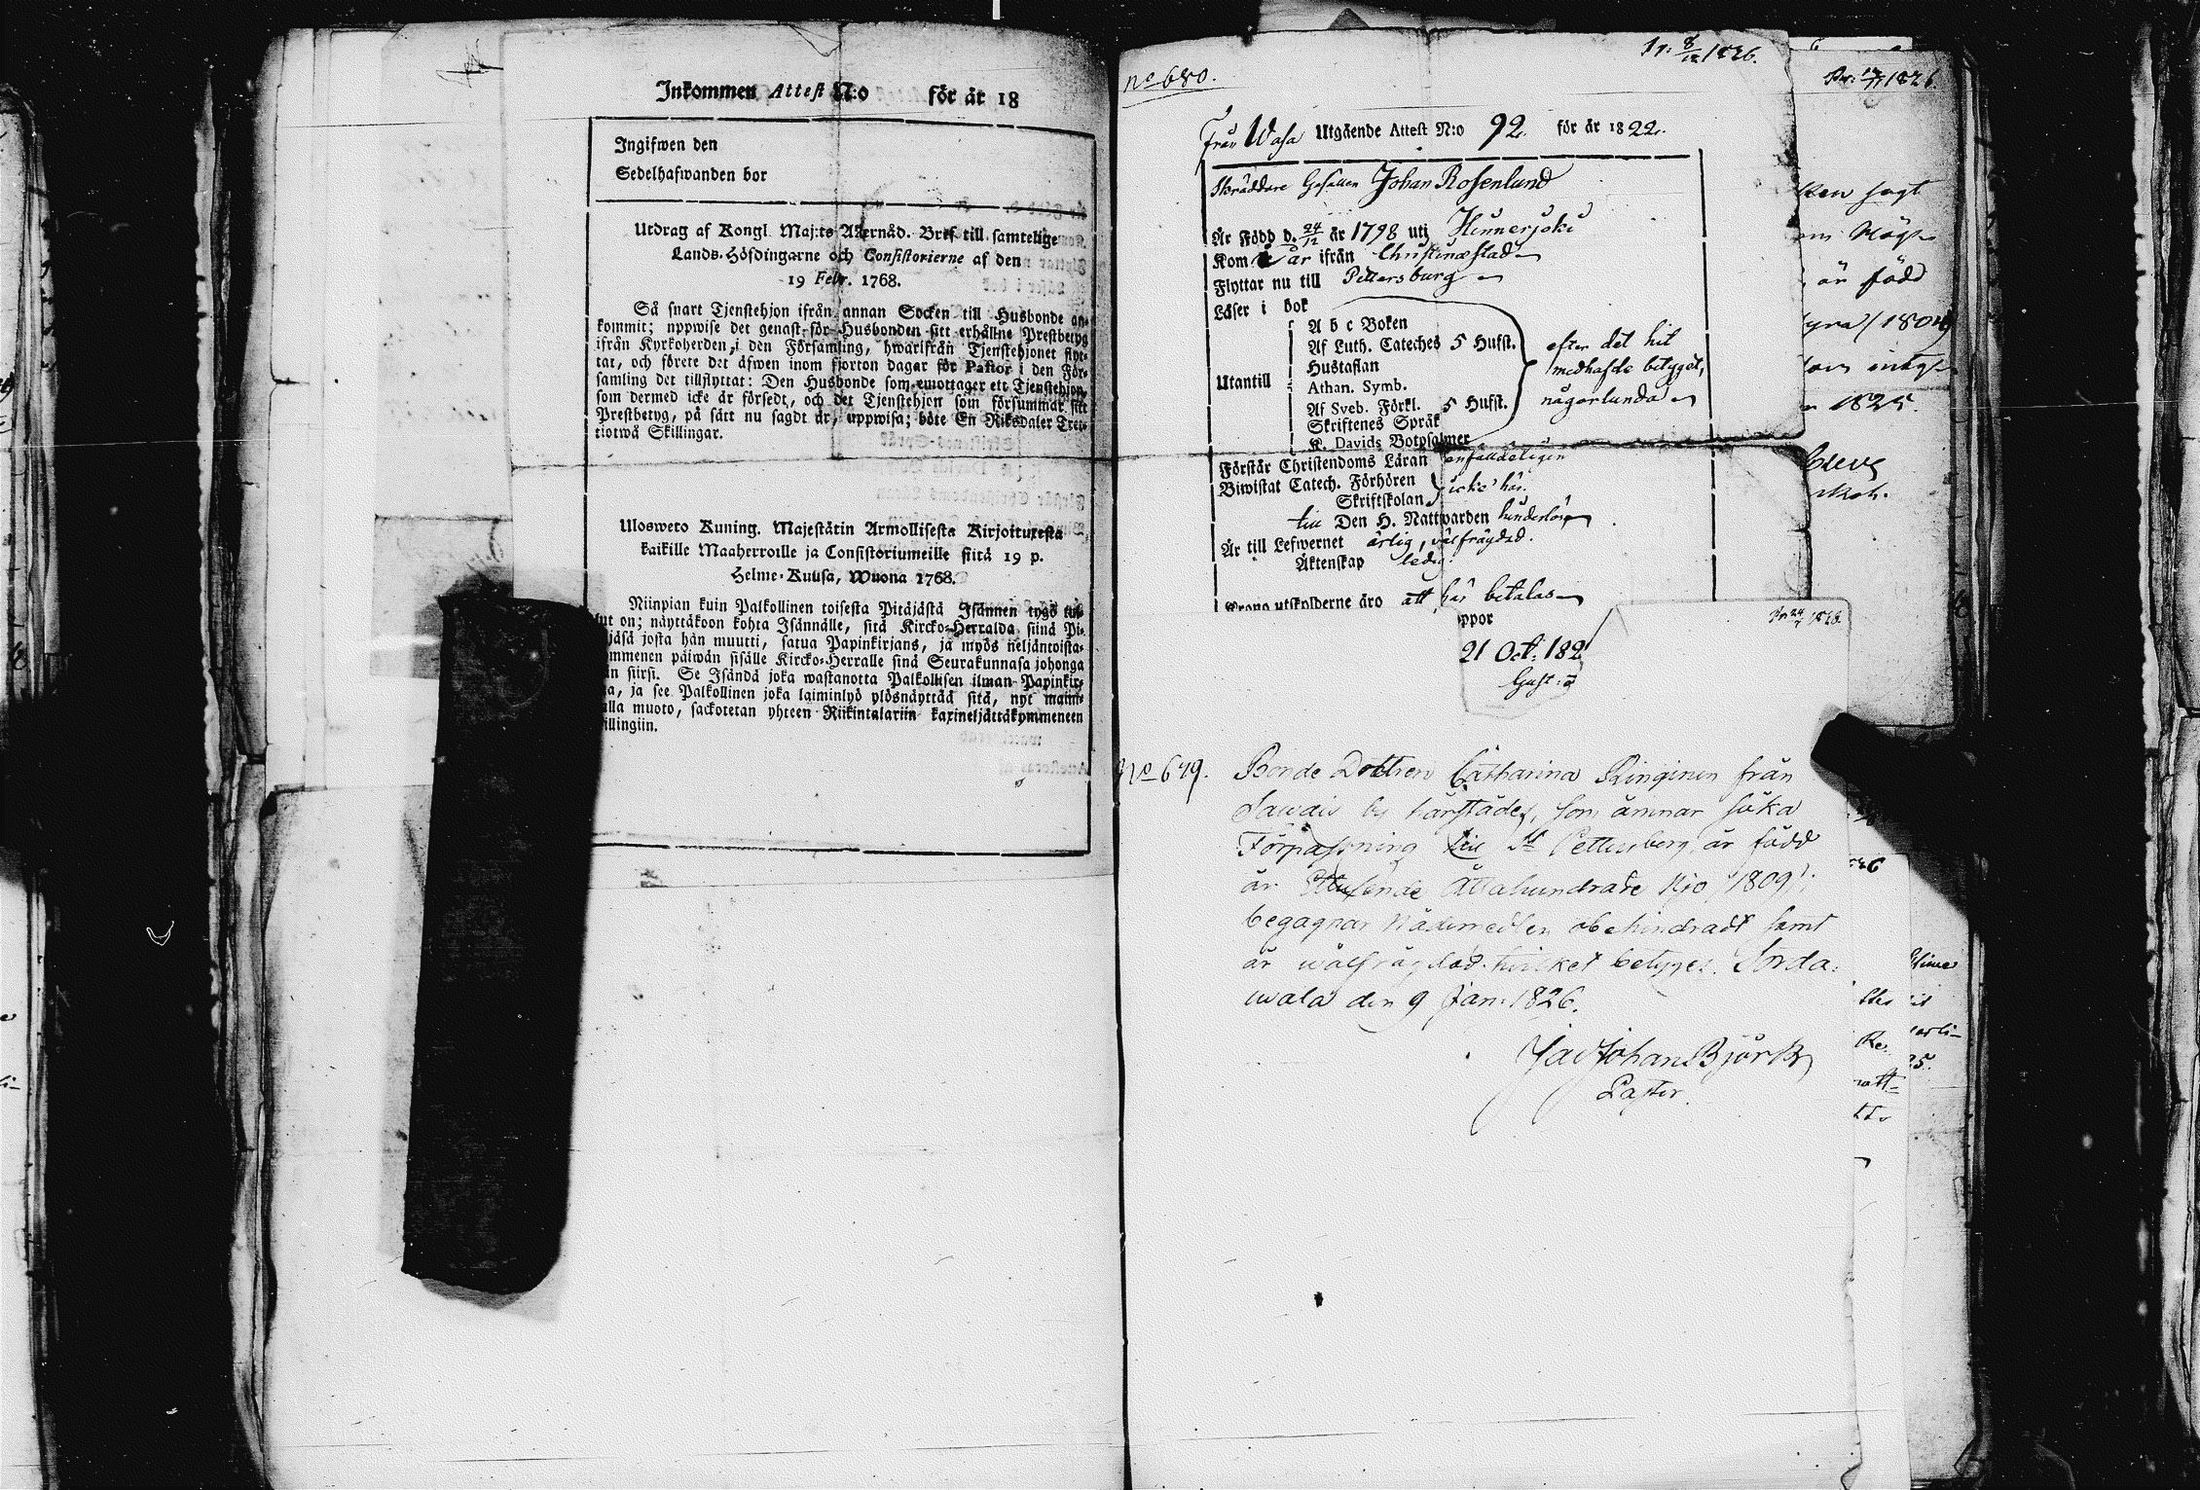 Inkommen Attest N:o för år 18
Ingifwen den
Sedelhafwanden bor
Utdrag af Kongl. Maj:ts Allernåd. Bref till samtelige
Lands-Höfdingarne och Consistorierne af den
19 Febr. 1768.
Så snart Tjenstehjon ifrån annan Socken till Husbonde an-
kommit; uppwise det genast för Husbonden sitt erhållne Prestbetyg
ifrån Kyrkoherden, i den Församling, hwarifrån Tjenstehjonet flyt-
tat, och förete det äfwen inom fjorton dagar för Pastor i den För-
samling det tillflyttat: Den Husbonde som emottager ett Tjenstehjon,
som dermed icke är försedt, och det Tjenstehjon som försummar sitt
Prestbetyg, på sätt nu sagdt är, uppwisa; böte En Riksdaler Tret-
tiotwå Skillingar.
Ulosweto Kuning. Majestätin Armollisesta Kirjoituxesta
kaikille Maaherroille ja Consistoriumeille siitä 19 p.
Helme-Kuusa, Wuona 1768.
Niinpian kuin Palkollinen toisesta Pitäjästä Isännen tygö tul-
lut on; näyttäkoon kohta Isännälle, sitä Kircko-Herralda siinä Pi-
jäsä josta hän muutti, saatua Papinkirjans, ja myös neljäntoista-
mmenen päiwän sisälle Kircko-Herralle siinä Seurakunnasa johonga
n siirsi. Se Isändä joka wastanotta Palkollisen ilman Papinkir-
a, ja see Palkollinen joka laiminlyö ylösnäyttää sitä, nyt maini-
alla muoto, sackotetan yhteen Riikintalariin kaxineljättäkymmeneen
illingiin.
No 680.
Pr: 8/12 1826.
Från Wasa Utgående Attest N:o 92. för år 1822.
Skräddare Gesällen Johan Rosenlund
Är Född d. 24/12 år 1798 uti Hinnerjoki
Kom i år ifrån Christinæstad
Flyttar nu till Pettersburg
Läser i bok
A b c Boken
Af Luth. Cateches 5 Hufst.
Hustaflan
Utantill
Athan. Symb.
Af Sveb. Förkl. 5 Hufst.
Skriftenes Språk
K. Davids Botpsalmer
efter det hit
medhafde betyget,
någorlunda
Förstår Christendoms Läran enfaldeligen
Biwistat Catech. Förhören
Skriftskolan icke här.
till Den H. Nattwarden hinderlös
Är till Lefwernet ärlig, wälfrägdad.
Äktenskap ledig.
Krono utskylderne äro att här betalas
ppor
21 Oct: 182
Gust:
Pr: 24/1 1826.
No 679. Bonde Dottren Catharina Ringinen från
by härstädes, som ämnar söka
Förpassning till St Pettersburg är född
år Ettusende Åttahundrade Nijo /1809/;
begagnar Nådemedlen obehindradt samt
är wälfrägdad. hwilket betygas. Sorda-
wala den 9 Jan: 1826.
Johan Björk
Pastor.
1826.
ken sagt
är född
1825.